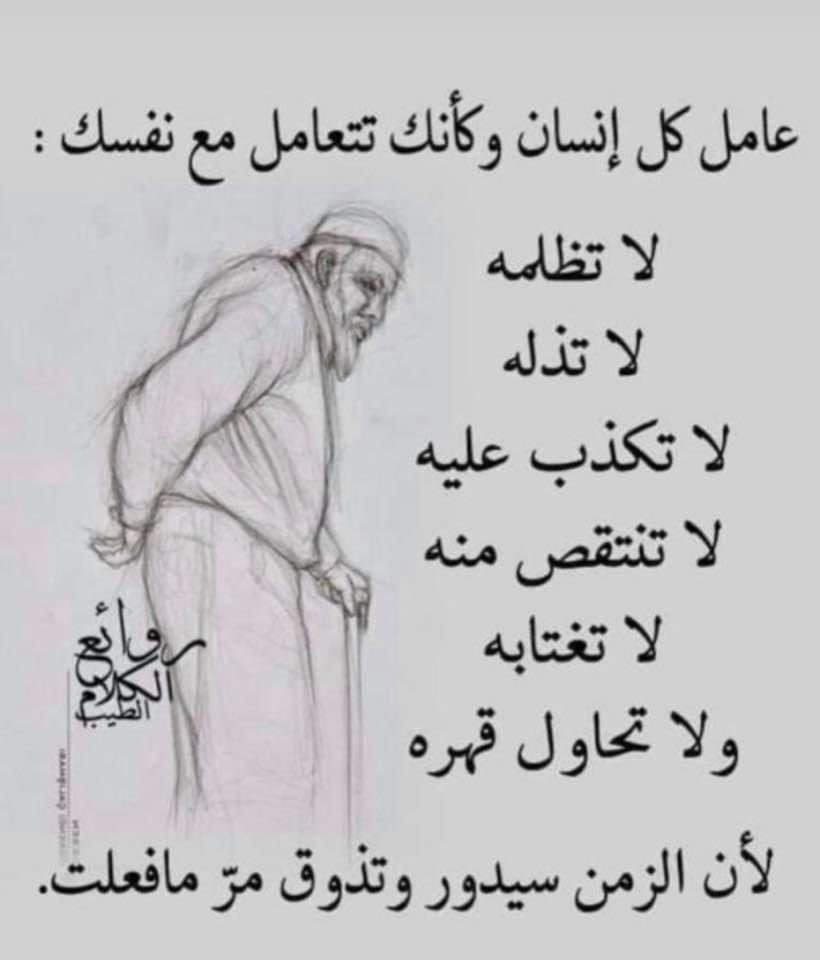 عامل كل إنسان وكأنك تتعامل مع نفسك :
لا تظلمه
لا تذله
لا تكذب عليه
لا تنتقص منه
لا تغتابه
ولا تحاول قهره
روائع
الكلام
الطيب
لأن الزمن سيدور وتذوق مرّ مافعلت.